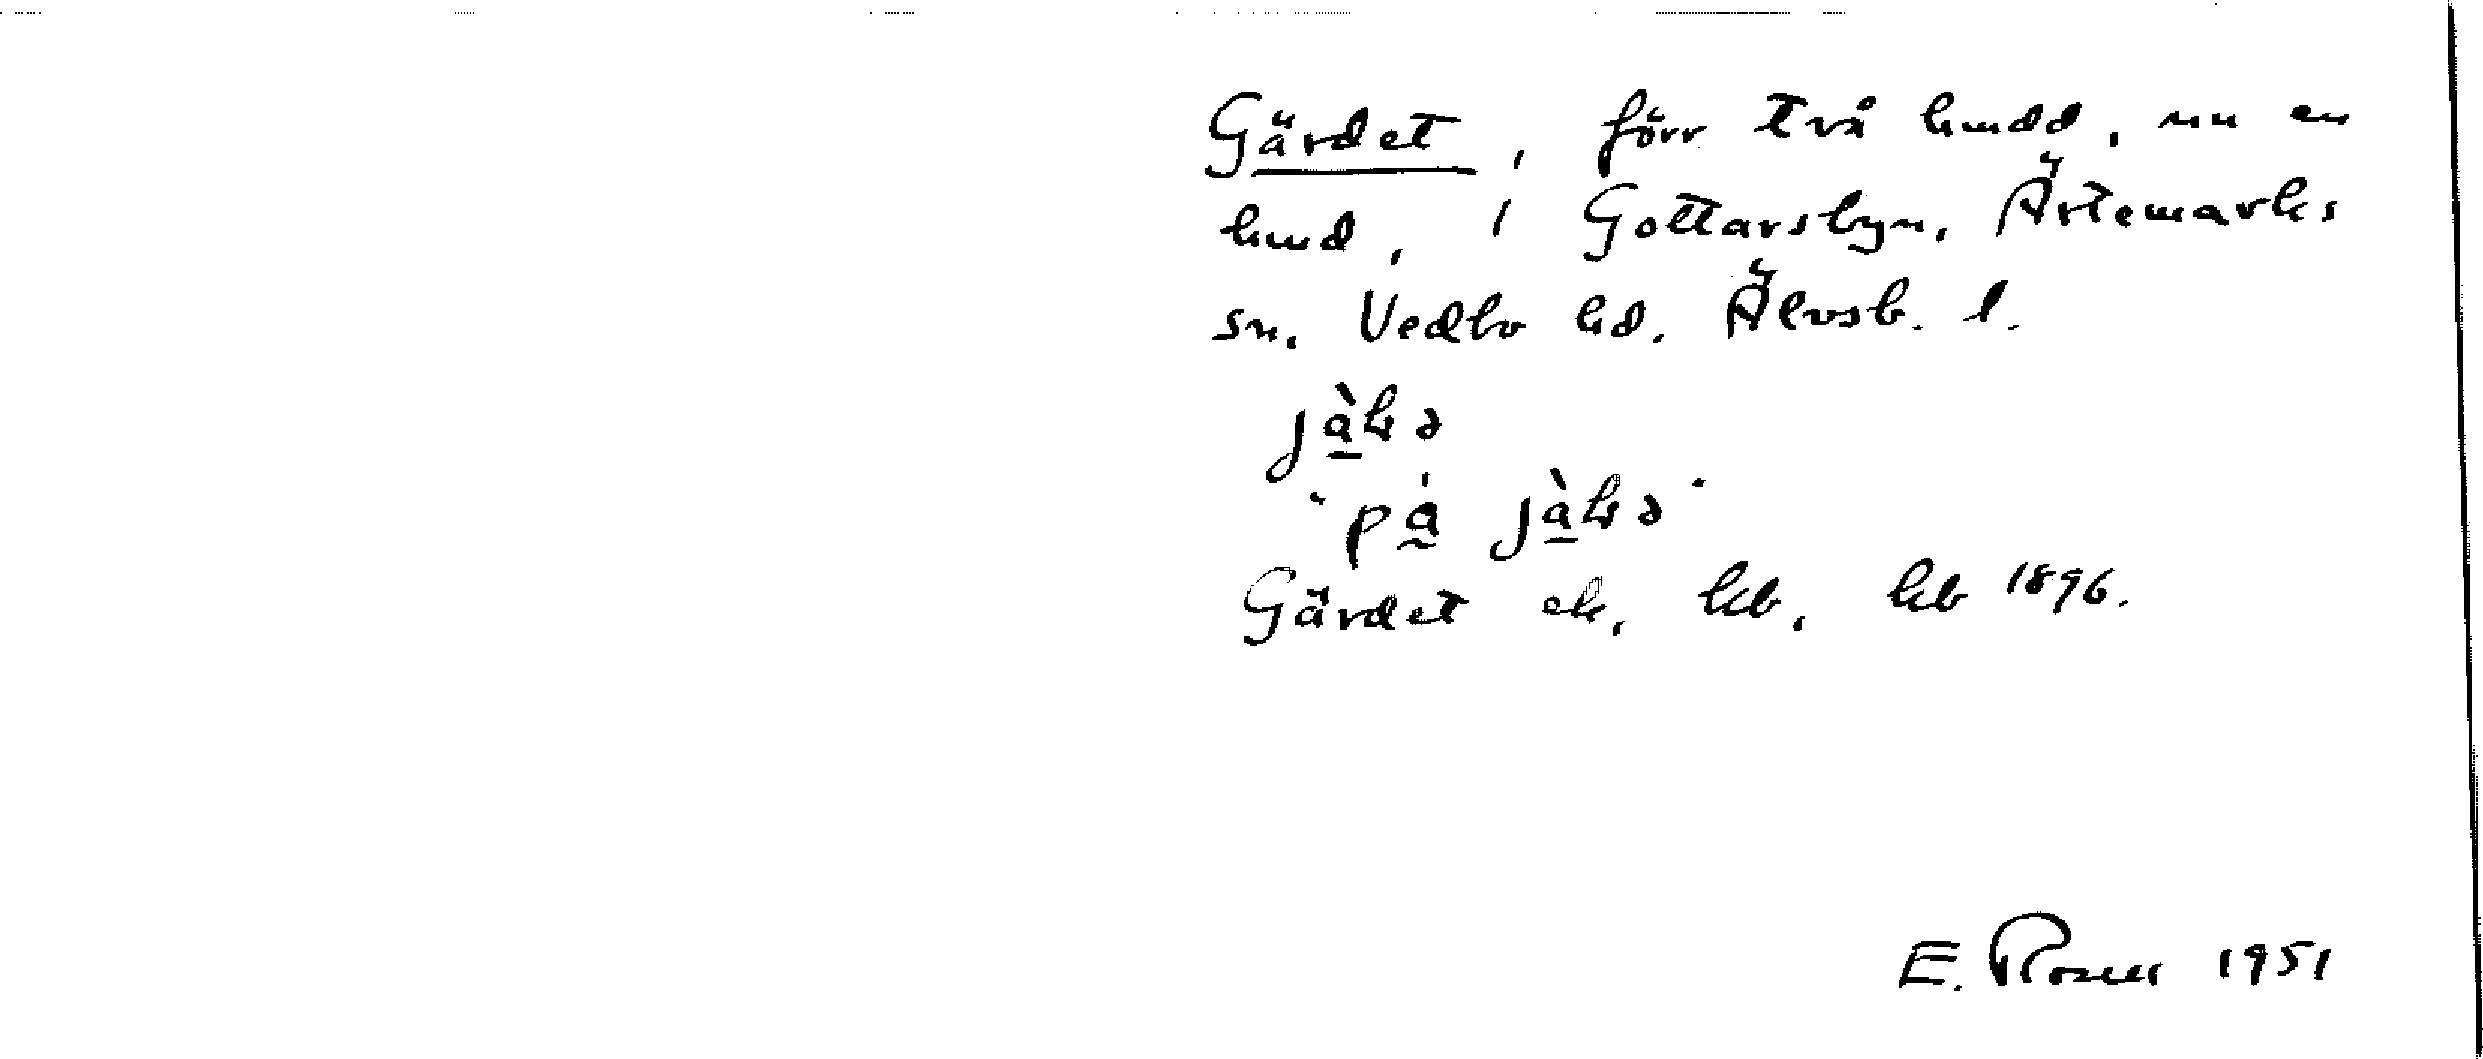 Gärdet, förr två hmdd, nu en
hmd, i Gottarsbyn, Ärtemarks
sn. Vedbo hd. Älvsb. l.
Gärdet ek, kb, kb 1896.
E. Rosell 1951